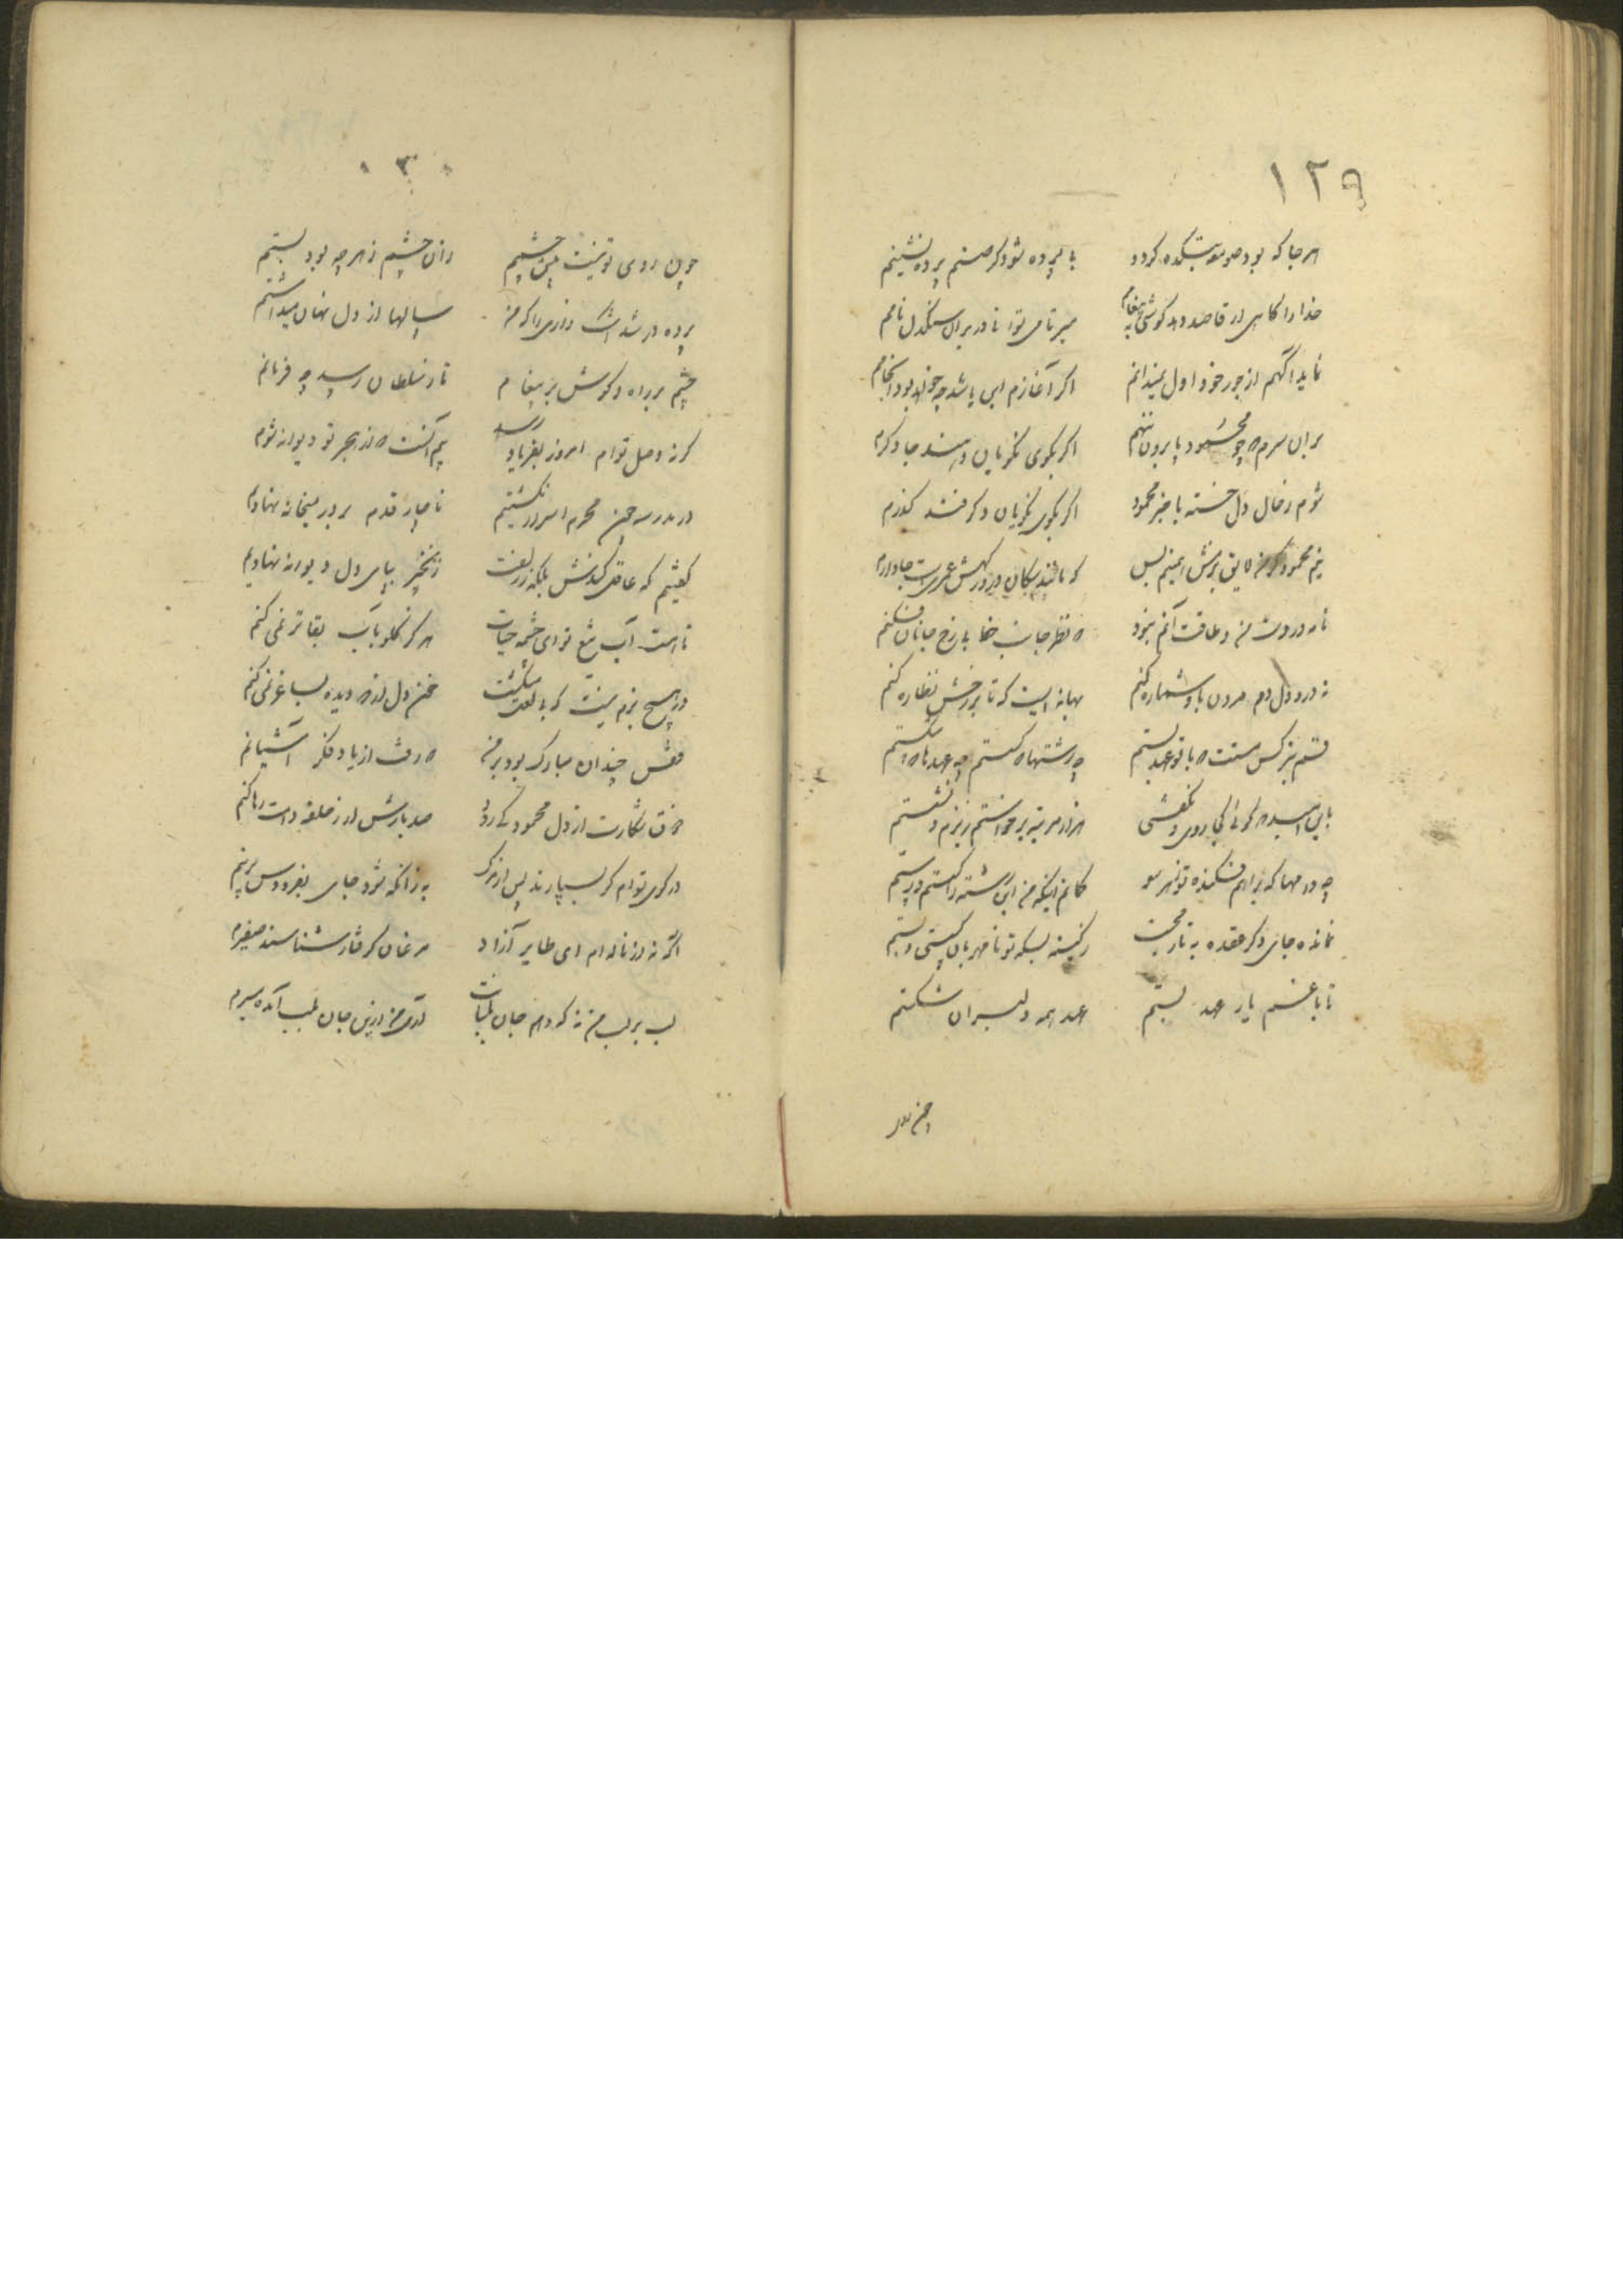 ١٢٩
هر جا که بود صومعه بتکده کردد با پرده شود کر صنم پرده نشینم
خدا را کاهی ار قاصد دهد کوشی به پیغامم مبر تا می توا نادر بران سنکدل نامم
نماید آکهم از جور خود اول نمیدانم اکر آغازم این باشد چه خواهد بود انجامم
بران سرم که چو محمود پا برون ننهم اکر بکوی نکویان دهند جا دکرم
شوم ز خال دل خسته با خبر محمود اکر بکوی نکویان دکر فتد کذرم
نیم محمود کر من لایق بزمش همینم بس که مانند سکان در درکهش عمریست جا دارم
نامه در دست من و طاقت آنم نبود که نظر جانب خط با رخ جانان فکنم
نه درد دل دهم مردن باو شماره کنم بهانه ایست که تا بر رخش نظاره کنم
قسم بنرکس مستت که با تو عهد بستم چه رشتها که کسستم چه عهدها که شکستم
باین امید که کوئی کجا روی و نکفتی هزار مرتبه برخواستم ز بزم و نشستم
چه دامها که براهم فکنده تو بهر سو کمانم اینکه من این رشته را کسستم و رستم
نمانده جای دکر عقده به تار محبت ز بسکه تو نامهربان کسستی و بستم
تا با غم یار عهد بستم عهد همه دلبران شکستم
چون
٣٠
چون روی تو نیست پیش چشمم زان چشم ز هر چه بود بستم
پرده در شد اشک رازی را که من سالها از دل نهان میداشتم
چشم بر راه و کوش بر پیغام تا ز سلطان رسد چه فرمانم
کر نه وصل توام امروز بفریاد رسد بیم آنست که از هجر تو دیوانه شوم
در مدرسه چون محرم اسرار نکشتیم ناچار قدم بر در میخانه نهادیم
کفتیم که عاقل کندش بلکه ز زلفت زنجیر بپای دل دیوانه نهادیم
تا هست آب تیغ تو ای چشمه حیات هرکز کلو بآب بقا تر نمی کنم
در هیچ بزم نیست که با لعل میکشت خون دل از دیده بساغر نمی کنم
قفس چندان مبارک بود بر من که رفت از یاد فکر آشیانم
ذوق شکارت از دل محمود کی رود صد بارش ار ز حلقه دامت رها کنم
در کوی توام کر بسپارند پس از مرک به زانکه شود جای بفردوس برینم
اکه نه از ناله ام ای طایر آزاد مرغان کرفتار شناسند صفیرم
لب بر لب من نه که دهم جان بلبانت